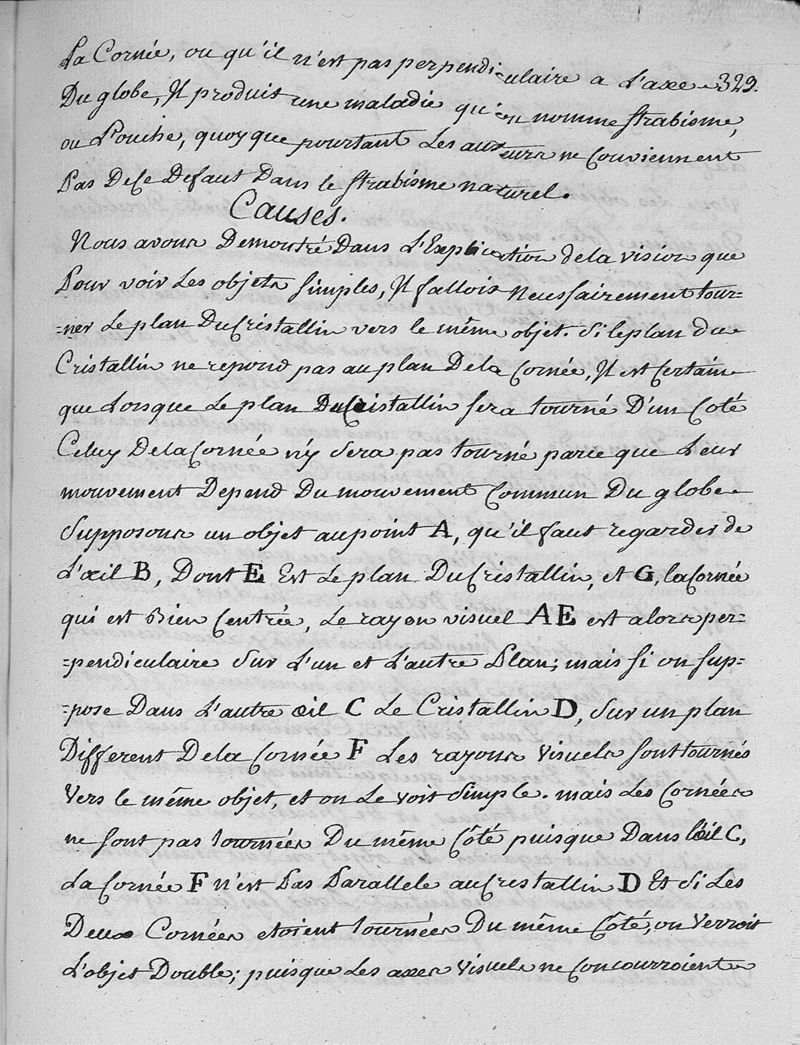 La Cornée, ou qu'il n'est pas perpendiculaire a L'axe 329.
Du globe, Il produit une maladie qu'on nomme strabisme,
ou Louche, quoyque pourtant Les auteurs ne Conviennent
Pas De Ce Defaut Dans le strabisme naturel.
Causes.
Nous avons Demontré Dans L'Explication de la vision que
Pour voir Les objets simples, Il falloit Necessairement tour=
=ner Le plan Du Cristallin vers le même objet. Si le plan du
Cristallin ne repond pas au plan De la Cornée, Il est Certain
que Lorsque Le plan Du Cristallin sera tourné D'un Coté
Celuy De la Cornée n'y Sera pas tourné parce que Leur
mouvement Depend Du mouvement Commun Du globe
Supposons un objet au point A, qu'il faut regarder de
L'œil B, Dont E Est Le plan Du Cristallin, et G, la Cornée
qui est Bien Centrée, Le rayon visuel AE est alors per=
=pendiculaire Sur L'un et L'autre Plan; mais si on sup=
=pose Dans L'autre œil C Le Cristallin D, Sur un plan
Different De la Cornée F Les rayons Visuels sont tournés
Vers le même objet, et on Le voit Simple. mais Les Cornées
ne sont pas tournées Du même Côté puisque Dans l'œil C,
La Cornée F n'est Pas Parallele au Cristallin D Et Si Les
Deux Cornées etoient tournées Du même Côté, on Verroit
L'objet Double; puisque Les axes Visuels ne Concourroient